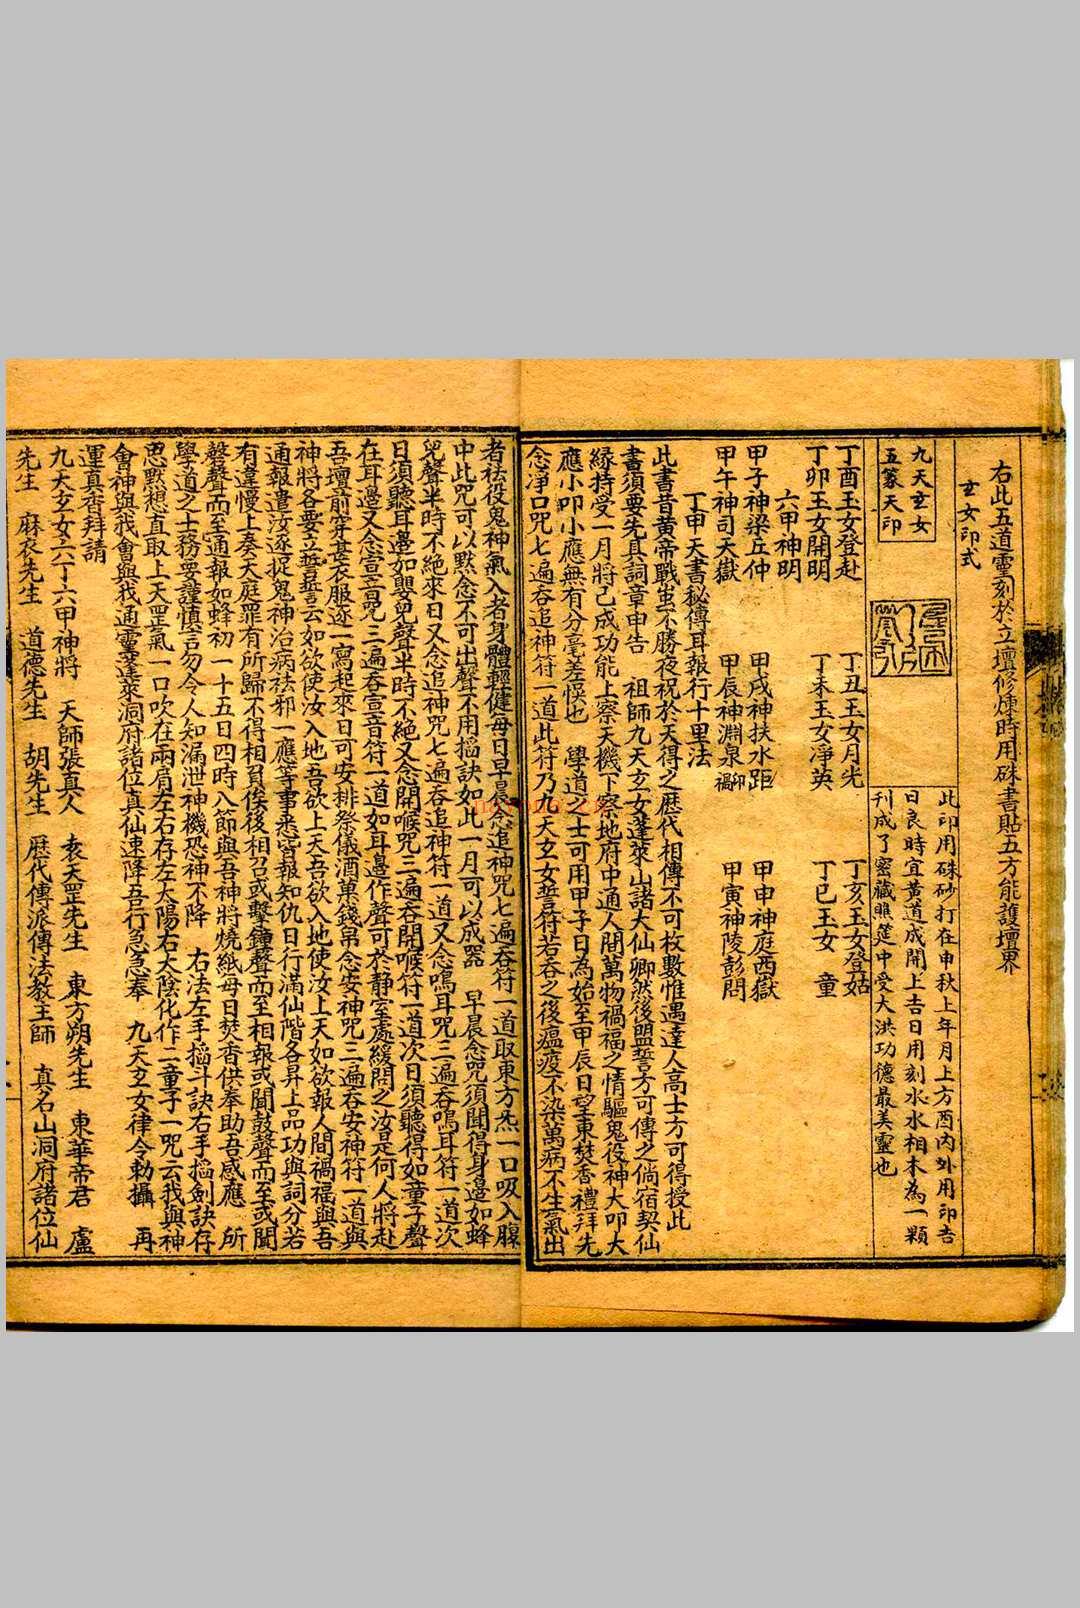 右此五道靈刻於立壇修煉時用硃書貼五方能護壇界
玄女印式
九天玄女
五篆天印
此印用硃砂打在申秋上年月上方酉內外用印告
日良時宜黃道成開上吉日用刻水水相木為一顆
刊成了密藏 筵中受大洪功德最美靈也
丁酉玉女登赴 丁丑玉女月光 丁亥玉女登姑
丁卯玉女開明 丁未玉女淨英 丁巳玉女 童
六甲神明
甲子神梁丘仲 甲戌神扶水距 甲申神庭西嶽
甲午神司天獄 甲辰神淵泉 甲寅神陵彭問
丁甲天書秘傳耳報行十里法
此書昔黃帝戰蚩不勝夜祝於天得之歷代相傳不可枚數惟遇達人高士方可得授此
書須要先具詞章申告 祖師九天玄女蓬萊山諸大仙卿然後盟誓方可傳之倘宿契仙
緣持受一月將已成功能上察天機下察地府中通人間萬物禍福之情驅鬼役神大叩大
應小叩小應無有分毫差悮也 學道之士可用甲子日為始至甲辰日望東焚香禮拜先
念淨口咒七遍吞追神符一道此符乃九天玄女誓符若吞之後瘟疫不染萬病不生氣出
者祛役鬼神氣入者身體輕健每日早晨念追神咒七遍吞符一道取東方炁一口吸入腹
中此咒可以默念不可出聲不用搯訣如此一月可以成器 早晨念咒須聞得身邊如蜂
兒聲半時不絕來日又念追神咒七遍吞追神符一道又念鳴耳咒三遍吞鳴耳符一道次
日須聽耳邊如嬰兒聲半時不絕又念開喉咒三遍吞開喉符一道次日須聽得如童子聲
在耳邊又念宣音咒三遍吞宣音符一道如耳邊作聲可於靜室處緩問之汝是何人將赴
吾壇前穿甚衣服逐一寫起來日可安排祭儀酒菓錢帛念安神咒三遍吞安神符一道與
神將各要立誓誓云如欲使汝入地吾欲上天吾欲入地使汝上天如欲報人間禍福與吾
通報遣汝逐捉鬼神治病祛邪一應等事悉皆報知仇日行滿仙階各昇上品功與詞分若
有違慢上奏天庭罪有所歸不得相負俟後相召或擊鐘聲而至相報或聞鼓聲而至或聞
磬聲而至通報如蜂初一十五日四時八節與吾神將燒紙每日焚香供奉助吾感應 所
學道之士務要謹慎言勿令人知漏泄神機恐神不降 右法左手搯斗訣右手搯劍訣存
思默想直取上天罡氣一口吹在兩肩左右存左太陽右太陰化作二童子一咒云我與神
會神與我會與我通靈蓬萊洞府諸位真仙速降吾行急急奉 九天玄女律令勅攝 再
運真香拜請
九天玄女六丁六甲神將 天師張真人 袁天罡先生 東方朔先生 東華帝君 盧
先生 麻衣先生 道德先生 胡先生 歷代傳派傳法教主師 真名山洞府諸位仙